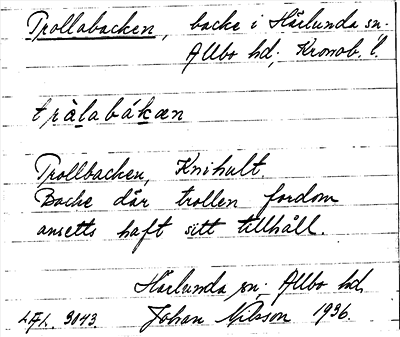 Trollabacken, backe i Härlunda sn.
Allbo hd, Kronob. l.
tràlabákan
Trollbacken, Knihult.
Backe där trollen fordom
ansetts haft sitt tillhåll.
Härlunda sn; Allbo hd.
3043. Johan Nilsson 1936.